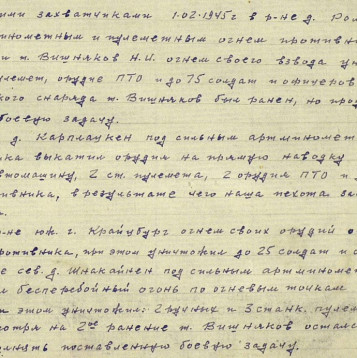 ими захватчиками 1.02.1945г в р-не д. Рол
инометным и пулеметным огнем противни
и т. Вишняков Н.И. огнем своего взвода ун
улемет, орудие ПТО и до 75 солдат и офицеров
кого снаряда т. Вишняков был ранен, но про
боевую задачу.
д. Карплаукен под сильным артминомет
ика выкатил орудия на прямую наводку
втомашину, 2 ст. пулемета, 2 орудия ПТО и
ивника, в результате чего наша пехота за
не юж. г. Крайцбург огнем своих орудий о
ротивника, при этом уничтожил до 25 солдат и о
е сев. д. Шнакайнен под сильным артминоме
л бесперебойный огонь по огневым точкам
и этом уничтожил: 2 ручных и 3 станк. пулем
отря на 2ое ранение т. Вишняков остался
лнять поставленную боевую задачу.